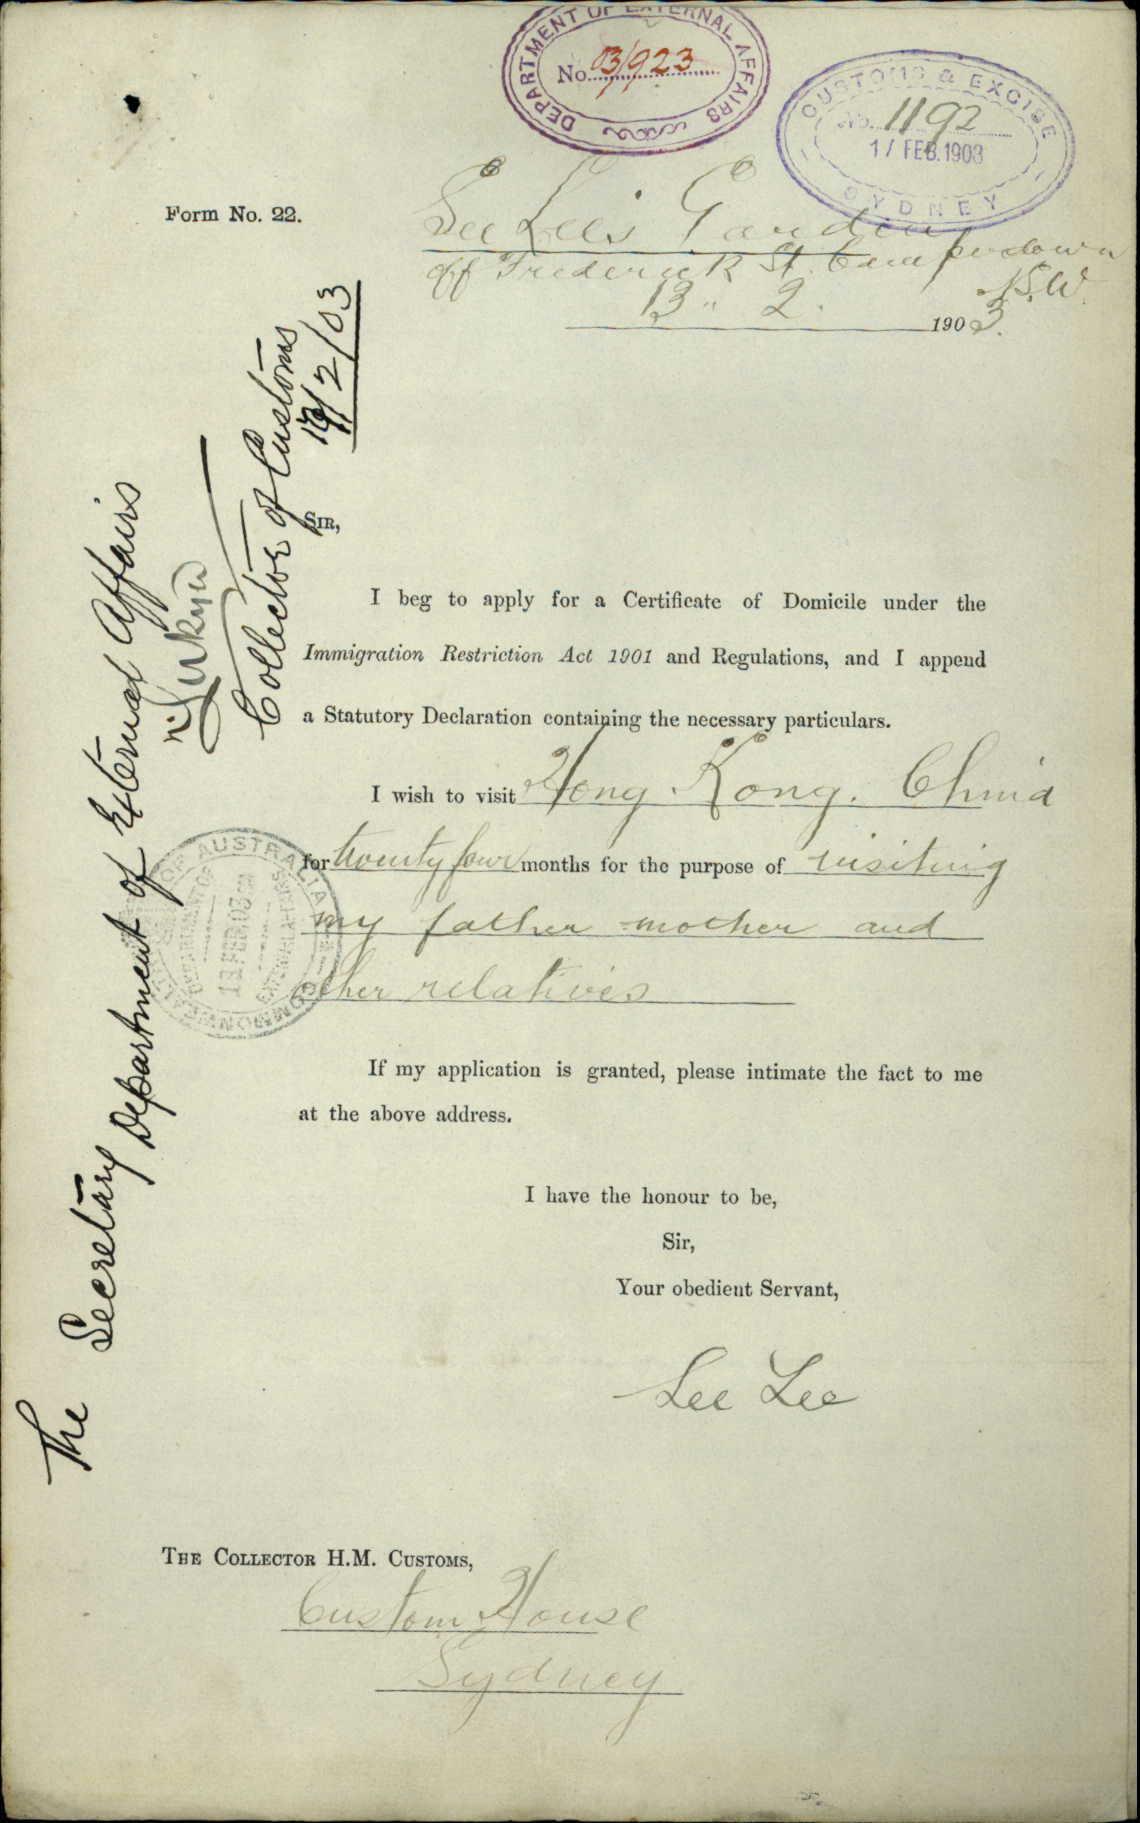 DEPARTMENT OF EXTERNAL AFFAIRS
No. 03/923
CUSTOMS & EXCISE
No. 1192
17 FEB. 1903
SYDNEY
Form No. 22.
See Lee's Garden
off Frederick St Camperdown
N.S.W.
13 .. 2. 1903.
SIR,
I beg to apply for a Certificate of Domicile under the
Immigration Restriction Act 1901 and Regulations, and I append
a Statutory Declaration containing the necessary particulars.
I wish to visit Hong Kong. China
for twenty four months for the purpose of visiting
my father mother and
other relatives
If my application is granted, please intimate the fact to me
at the above address.
I have the honour to be,
Sir,
Your obedient Servant,
See Lee
THE COLLECTOR H.M. CUSTOMS,
Custom House
Sydney
The Secretary Department of External Affairs
Collector of Customs
/2/03
COMMONWEALTH OF AUSTRALIA
DEPARTMENT OF
FEB 03
EXTERNAL AFFAIRS